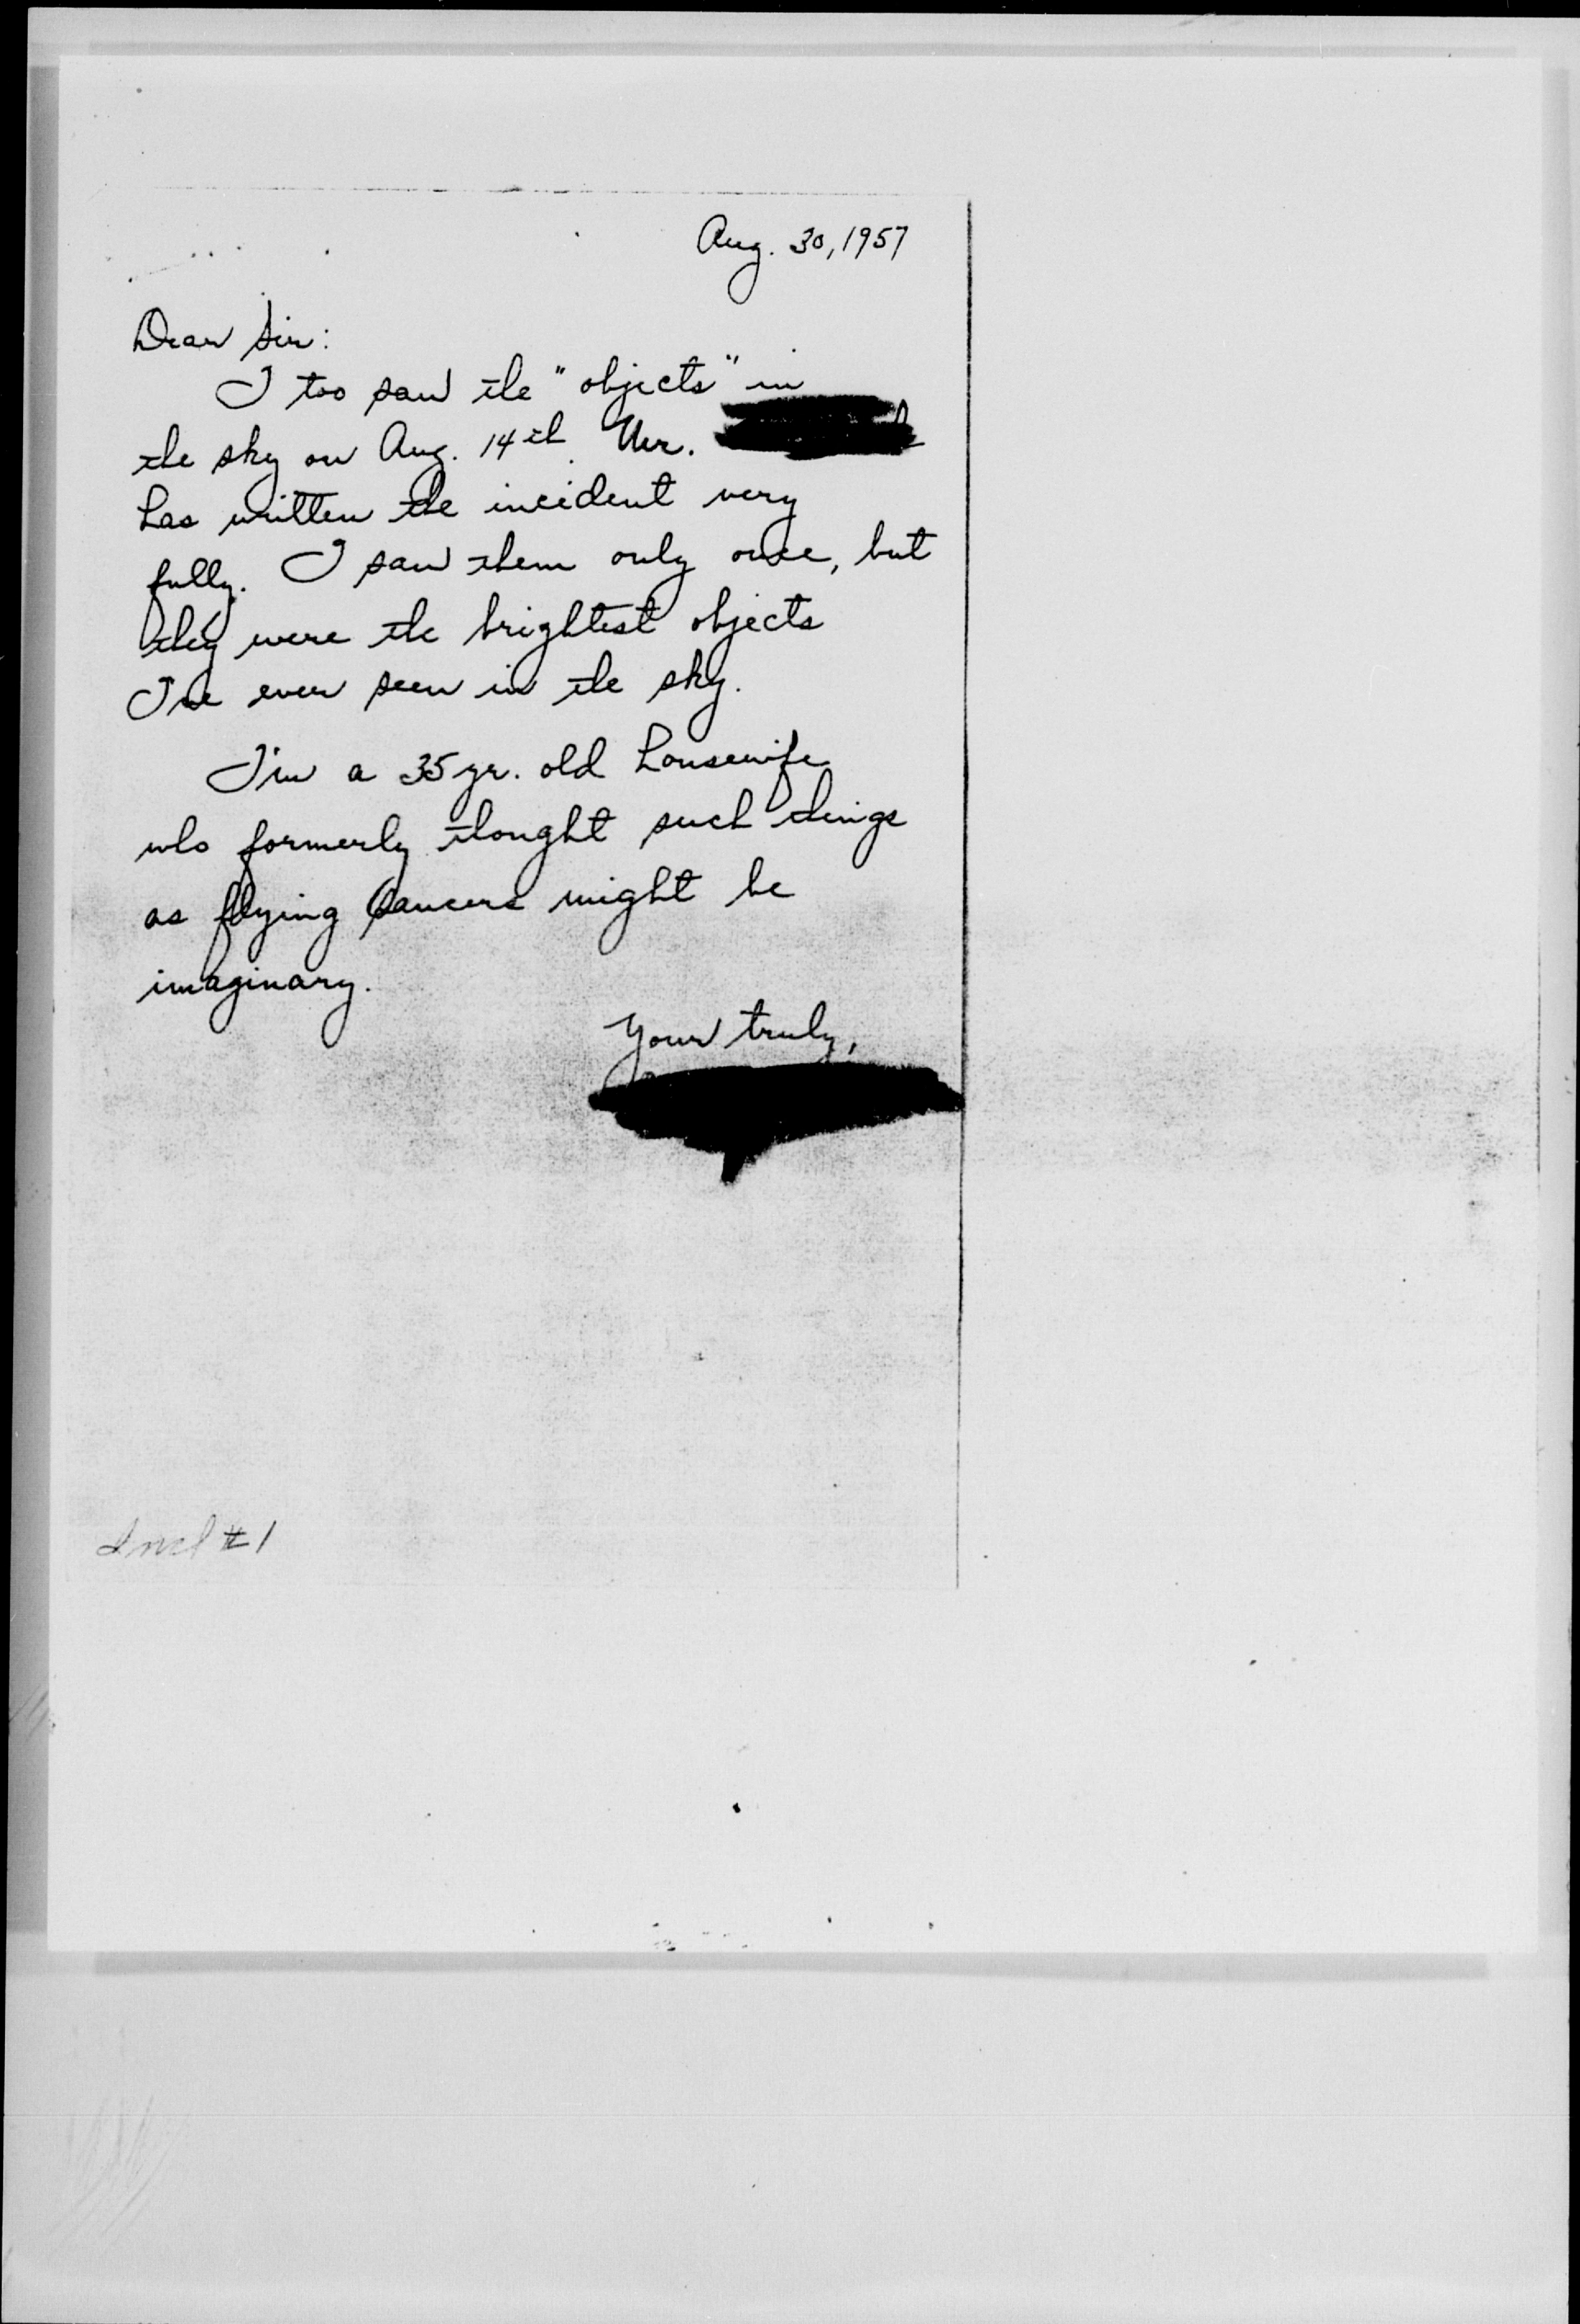 Aug. 30, 1957
Dear Sir:
I too saw the "objects" in
the sky on Aug. 14th. Mr.
has written the incident very
fully. I saw them only once, but
they were the brightest objects
I've ever seen in the sky.
I'm a 35 yr. old housewife
who formerly thought such things
as flying saucers might be
imaginary.
Your truly,
Incl #1